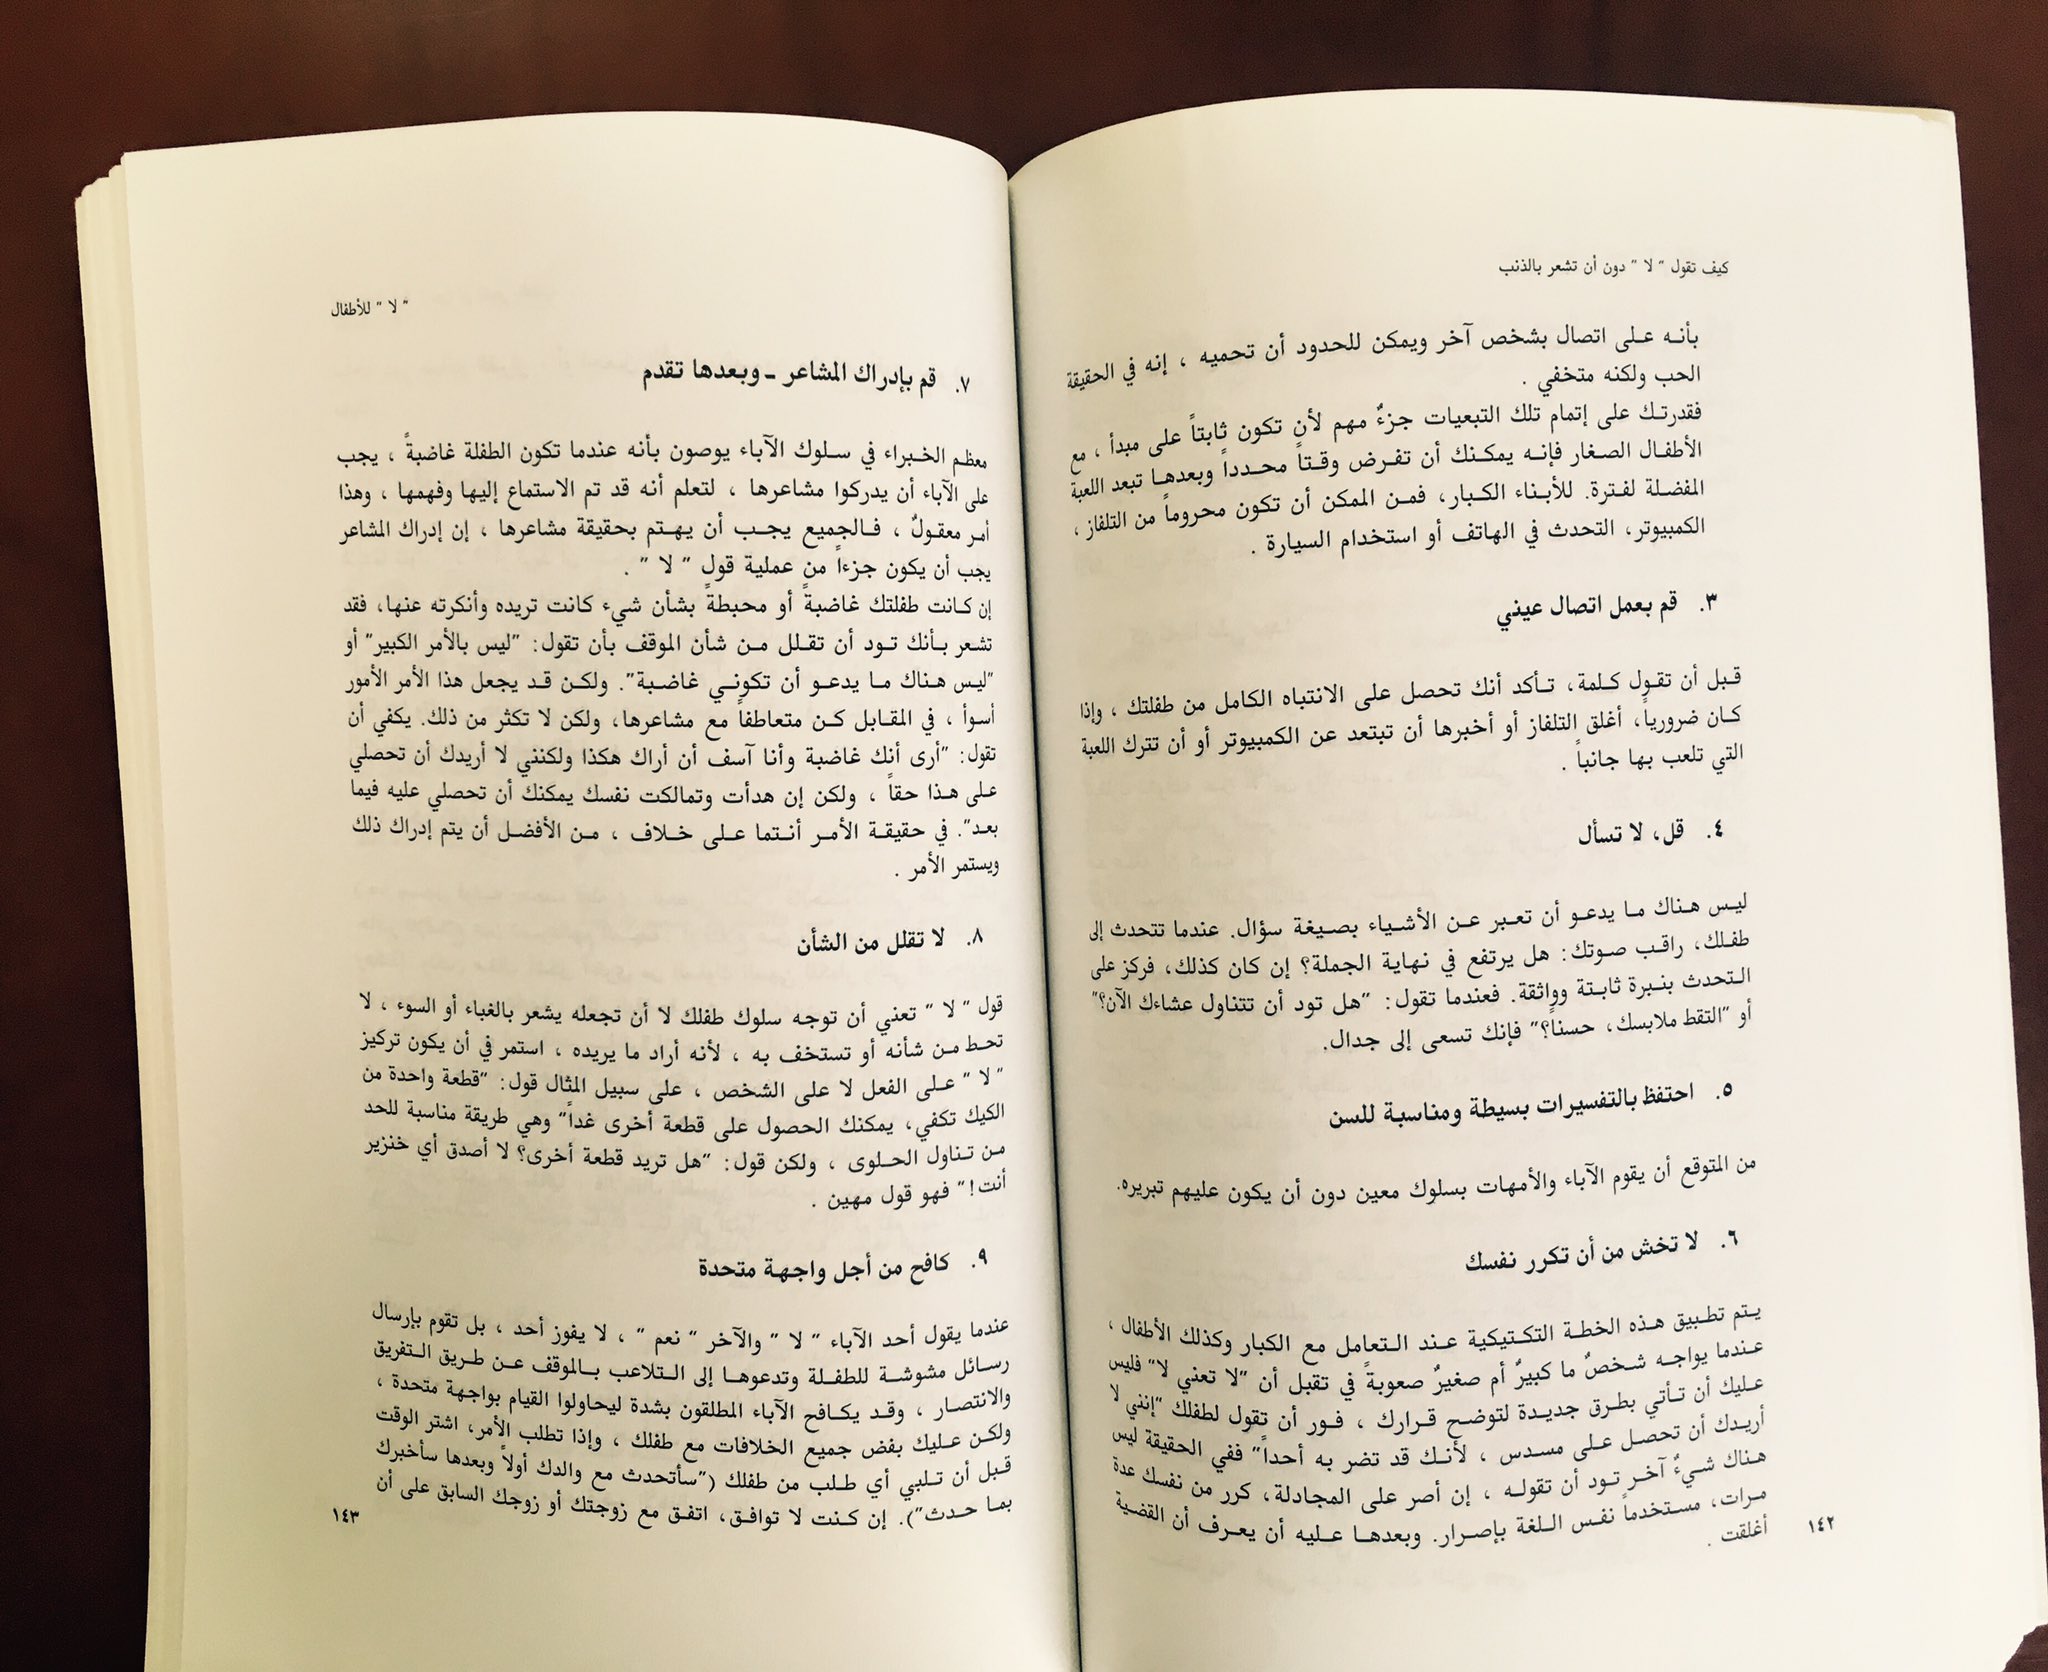 كيف تقول " لا " دون أن تشعر بالذنب
بأنه على اتصال بشخص آخر ويمكن للحدود أن تحميه ، إنه في الحقيقة
الحب ولكنه متخفي .
فقدرتك على إتمام تلك التبعيات جزءٌ مهم لأن تكون ثابتاً على مبدأ ، مع
الأطفال الصغار فإنه يمكنك أن تفرض وقتاً محدداً وبعدها تبعد اللعبة
المفضلة لفترة. للأبناء الكبار، فمن الممكن أن تكون محروماً من التلفاز ،
الكمبيوتر، التحدث في الهاتف أو استخدام السيارة .
٣. قم بعمل اتصال عيني
قبل أن تقول كلمة، تأكد أنك تحصل على الانتباه الكامل من طفلتك ، وإذا
كان ضرورياً، أغلق التلفاز أو أخبرها أن تبتعد عن الكمبيوتر أو أن تترك اللعبة
التي تلعب بها جانباً .
٤. قل، لا تسأل
ليس هناك ما يدعو أن تعبر عن الأشياء بصيغة سؤال. عندما تتحدث إلى
طفلك، راقب صوتك: هل يرتفع في نهاية الجملة؟ إن كان كذلك، فركز على
التحدث بنبرة ثابتة وواثقة. فعندما تقول: "هل تود أن تتناول عشاءك الآن؟"
أو "التقط ملابسك، حسناً؟" فإنك تسعى إلى جدال.
٥. احتفظ بالتفسيرات بسيطة ومناسبة للسن
من المتوقع أن يقوم الآباء والأمهات بسلوك معين دون أن يكون عليهم تبريره.
٦. لا تخش من أن تكرر نفسك
يتم تطبيق هذه الخطة التكتيكية عند التعامل مع الكبار وكذلك الأطفال ،
عندما يواجه شخصٌ ما كبيرٌ أم صغيرٌ صعوبةً في تقبل أن "لا تعني لا" فليس
عليك أن تأتي بطرق جديدة لتوضح قرارك ، فور أن تقول لطفلك "إنني لا
أريدك أن تحصل على مسدس ، لأنك قد تضر به أحداً" ففي الحقيقة ليس
هناك شيءٌ آخر تود أن تقوله ، إن أصر على المجادلة، كرر من نفسك عدة
مرات، مستخدماً نفس اللغة بإصرار. وبعدها عليه أن يعرف أن القضية
أغلقت .
١٤٢
" لا " للأطفال
٧. قم بإدراك المشاعر ـ وبعدها تقدم
معظم الخبراء في سلوك الآباء يوصون بأنه عندما تكون الطفلة غاضبةً ، يجب
على الآباء أن يدركوا مشاعرها ، لتعلم أنه قد تم الاستماع إليها وفهمها ، وهذا
أمر معقولٌ ، فالجميع يجب أن يهتم بحقيقة مشاعرها ، إن إدراك المشاعر
يجب أن يكون جزءاً من عملية قول " لا " .
إن كانت طفلتك غاضبةً أو محبطةً بشأن شيء كانت تريده وأنكرته عنها، فقد
تشعر بأنك تود أن تقلل من شأن الموقف بأن تقول: "ليس بالأمر الكبير" أو
"ليس هناك ما يدعو أن تكوني غاضبة". ولكن قد يجعل هذا الأمر الأمور
أسوأ ، في المقابل كن متعاطفاً مع مشاعرها، ولكن لا تكثر من ذلك. يكفي أن
تقول: "أرى أنك غاضبة وأنا آسف أن أراك هكذا ولكنني لا أريدك أن تحصلي
على هذا حقاً ، ولكن إن هدأت وتمالكت نفسك يمكنك أن تحصلي عليه فيما
بعد". في حقيقة الأمر أنتما على خلاف ، من الأفضل أن يتم إدراك ذلك
ويستمر الأمر .
٨. لا تقلل من الشأن
قول " لا " تعني أن توجه سلوك طفلك لا أن تجعله يشعر بالغباء أو السوء ، لا
تحط من شأنه أو تستخف به ، لأنه أراد ما يريده ، استمر في أن يكون تركيز
" لا " على الفعل لا على الشخص ، على سبيل المثال قول: "قطعة واحدة من
الكيك تكفي، يمكنك الحصول على قطعة أخرى غداً" وهي طريقة مناسبة للحد
من تناول الحلوى ، ولكن قول: "هل تريد قطعة أخرى؟ لا أصدق أي خنزير
أنت!" فهو قول مهين .
٩. كافح من أجل واجهة متحدة
عندما يقول أحد الآباء " لا " والآخر " نعم " ، لا يفوز أحد ، بل تقوم بإرسال
رسائل مشوشة للطفلة وتدعوها إلى التلاعب بالموقف عن طريق التفريق
والانتصار ، وقد يكافح الآباء المطلقون بشدة ليحاولوا القيام بواجهة متحدة ،
ولكن عليك بفض جميع الخلافات مع طفلك ، وإذا تطلب الأمر، اشتر الوقت
قبل أن تلبي أي طلب من طفلك ("سأتحدث مع والدك أولاً وبعدها سأخبرك
بما حدث"). إن كنت لا توافق، اتفق مع زوجتك أو زوجك السابق على أن
١٤٣